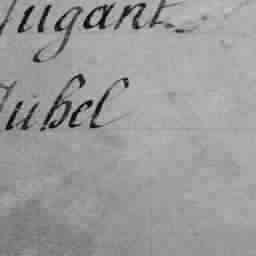 Jugant
Jubel